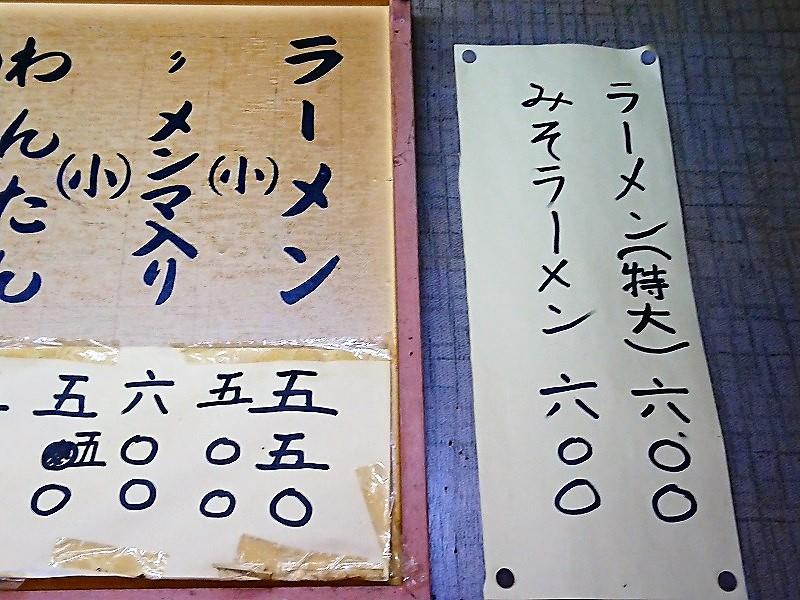 ラーメン(特大)六〇〇
みそラーメン 六〇〇
ラーメン 五五〇
(小) 五〇〇
〃メンマ入り 六〇〇
(小) 五五〇
わんたん